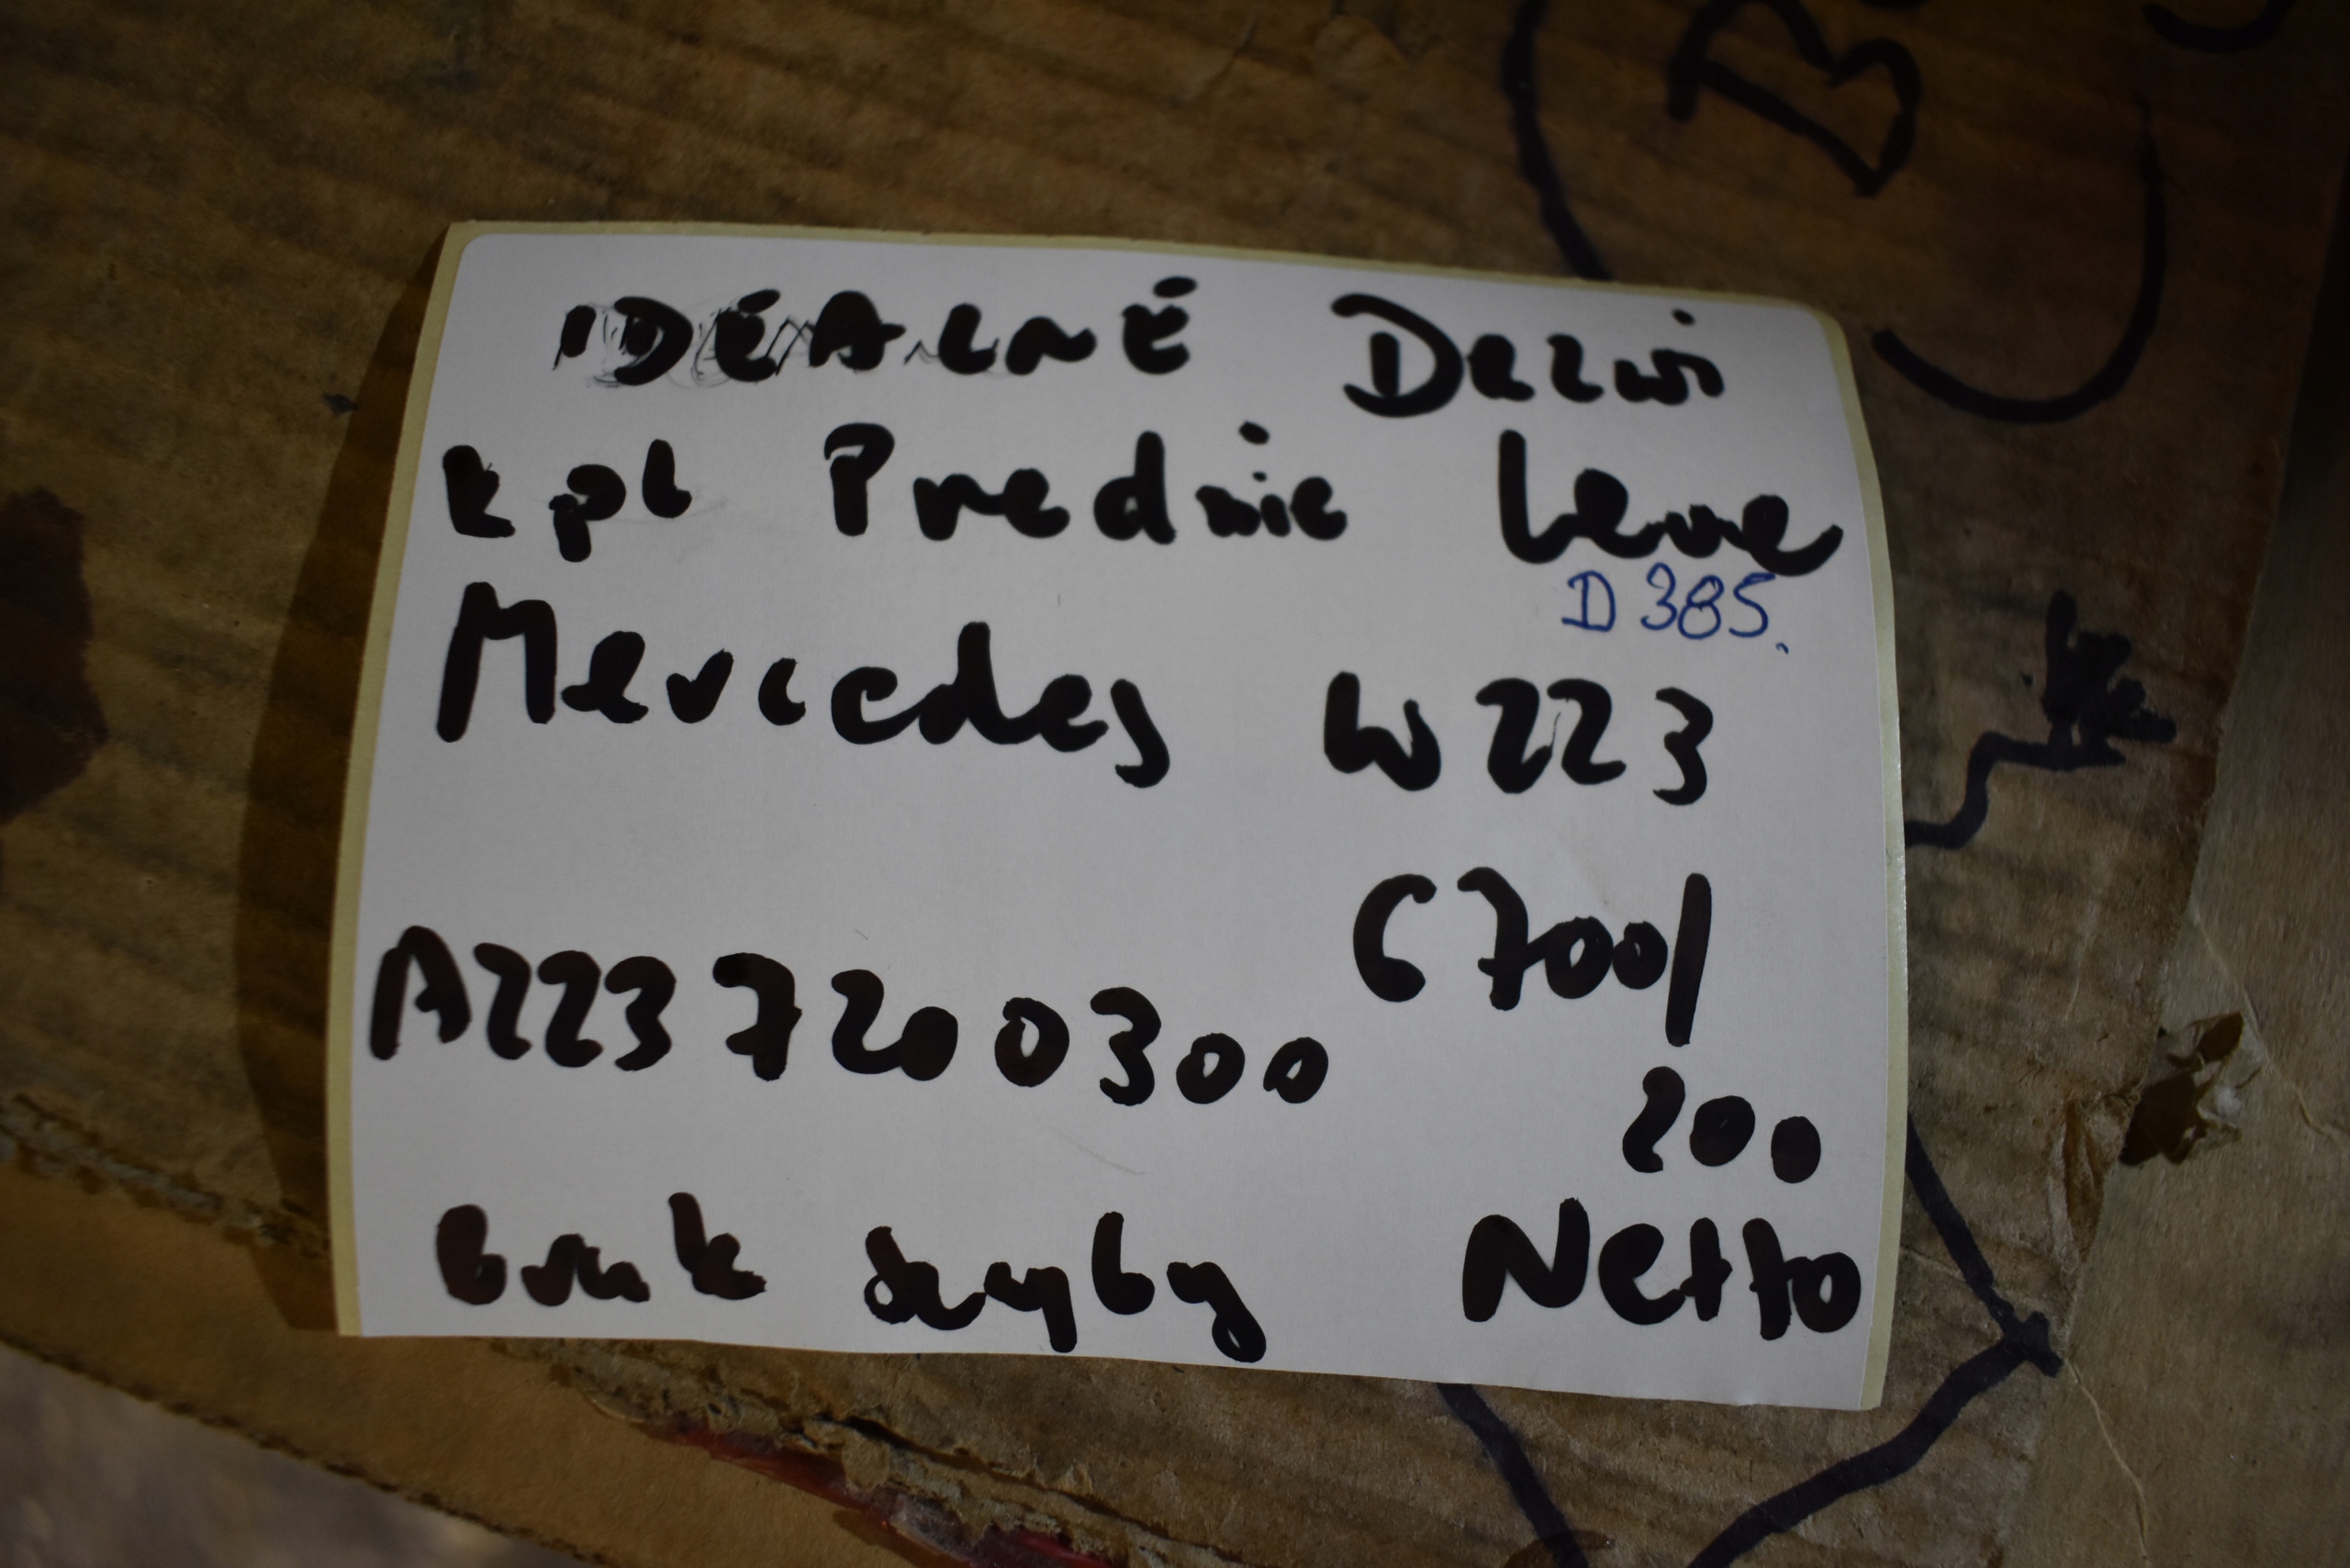 IDEALNE Drzwi
kpl Prednie Lewe
D 385.
Mercedes W223
6700/
A223 720 0300
200
Brak szyby Netto